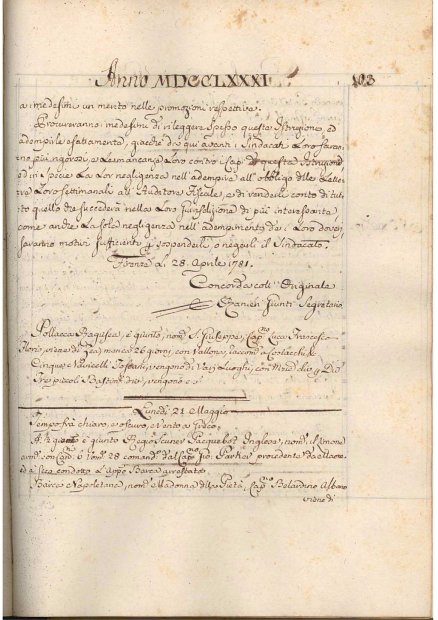 Anno MDCCLXXXI. 103
a i medesimi un merito nelle promozioni respettive.
Procureranno i medesimi di rileggere spesso questa Istruzione, ed
adempirla esattamente, giacchè di quì avanti i Sindacati Loro saran-
no più rigorosi, e le mancanze Loro contro i Cap. di questa Istruzione
ed in specie la Lor negligenza nell'adempire all'obbligo delle Lette-
re Loro settimanali all'Auditore Fiscale, e di renderli conto di tut-
to quello che succederà nella Loro Jurisdizione di più interessante,
come anche la sola negligenza nell'adempimento de i Loro doveri
saranno motivi sufficienti p sospenderli, o negarli il Sindacato.
Firenze a dì 28. Aprile 1781.
Concorda coll'Originale
Ranieri Giunti Segretario
Pollacca Ragusea, è giunto, nom. S. Giuseppe, Cap.no Luca Francesco
Florio, viene di in 26 giorni, con Vallonea, racc. a Costacchi e
Cinque Navicelli Toscani, vengono da Varj Luoghi, con Merci che p Dio
Tre piccoli Bastim.ti vengono e
Lunedì 21 Maggio
Tempo frà chiaro, e oscuro, e vento a Libeccio.
è giunto Regio Scuner Pacquebot Inglese, nom. il Simone
arm. con Can. 6 Uom. 28 comand. dal Cap.no Gio. Parker procedente da Maone
ed à seco condotto Barca arrestata
Barca Napoletana, nom. Madonna della Pietà, Cap.no Belardino Albano
viene di